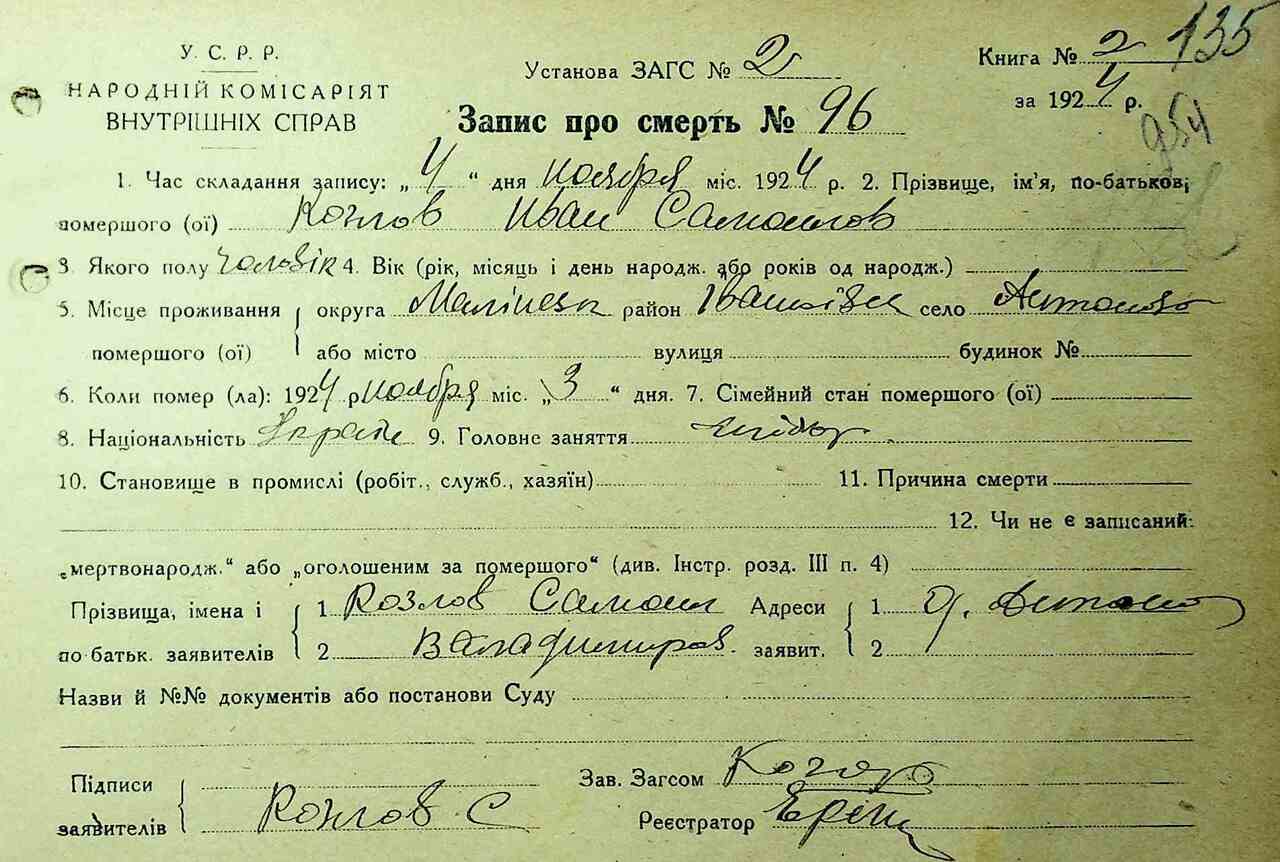 У. С. Р. Р.
НАРОДНІЙ КОМІСАРІЯТ
ВНУТРІШНІХ СПРАВ
Установа ЗАГС № 2
Книга № 2 135
за 1924 р.
954
Запис про смерть № 96
1. Час складання запису: „ 4 “ дня ноября міс. 1924 р. 2. Прізвище, ім'я, по-батькові
помершого (ої) Козлов Иван Самоилов
3. Якого полу чоловік 4. Вік (рік, місяць і день народж. або років од народж.)
5. Місце проживання округа Малінськ район Іванківськ село Антонов
помершого (ої) або місто вулиця будинок №
6. Коли помер (ла): 1924 р ноября міс. „ 3 “ дня. 7. Сімейний стан помершого (ої)
8. Національність Україн 9. Головне заняття
10. Становище в промислі (робіт., служб., хазяїн) 11. Причина смерти
12. Чи не є записаний:
„мертвонародж.“ або „оголошеним за помершого“ (див. Інстр. розд. III п. 4)
Прізвища, імена і 1 Козлов Самоил Адреси 1
по батьк. заявителів 2 Валадимиров. заявит. 2
Назви й №№ документів або постанови Суду
Підписи Зав. Загсом
заявителів Козлов С Реєстратор